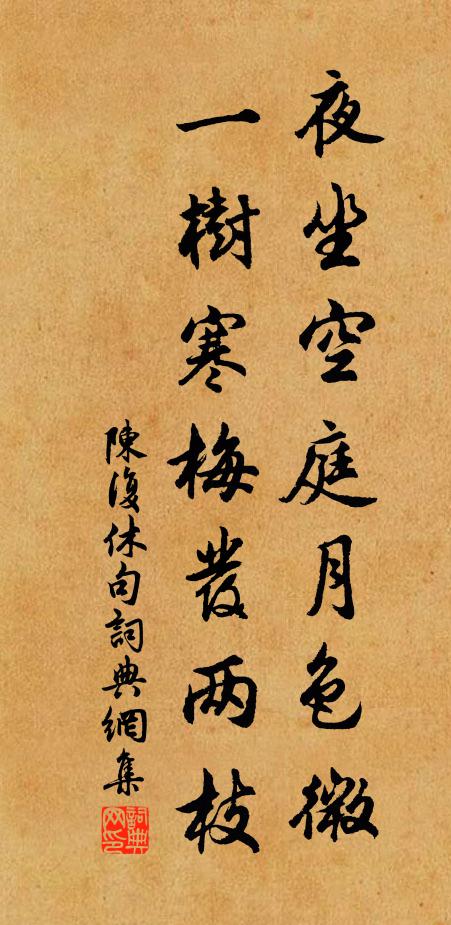 夜坐空庭月色微
一樹寒梅發两枝
陳復休句詞典網集
詞典网印